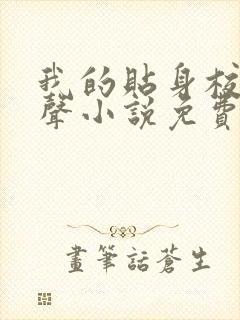 我的貼身校
聲小說免費
畫筆話蒼生